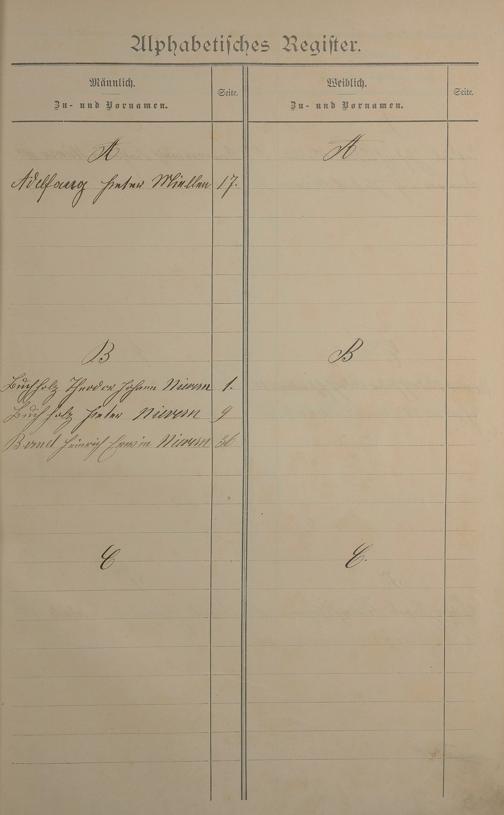 Alphabetisches Register.
Männlich.
Zu- und Vornamen.
Seite.
Weiblich.
Zu- und Vornamen.
Seite.
A
A
Peter Miellen 17.
B
B
Buchholz Theodor Johann Nievern 1.
Buchholz Peter Nievern 9
Heinrich Erwin Nievern
C
C.